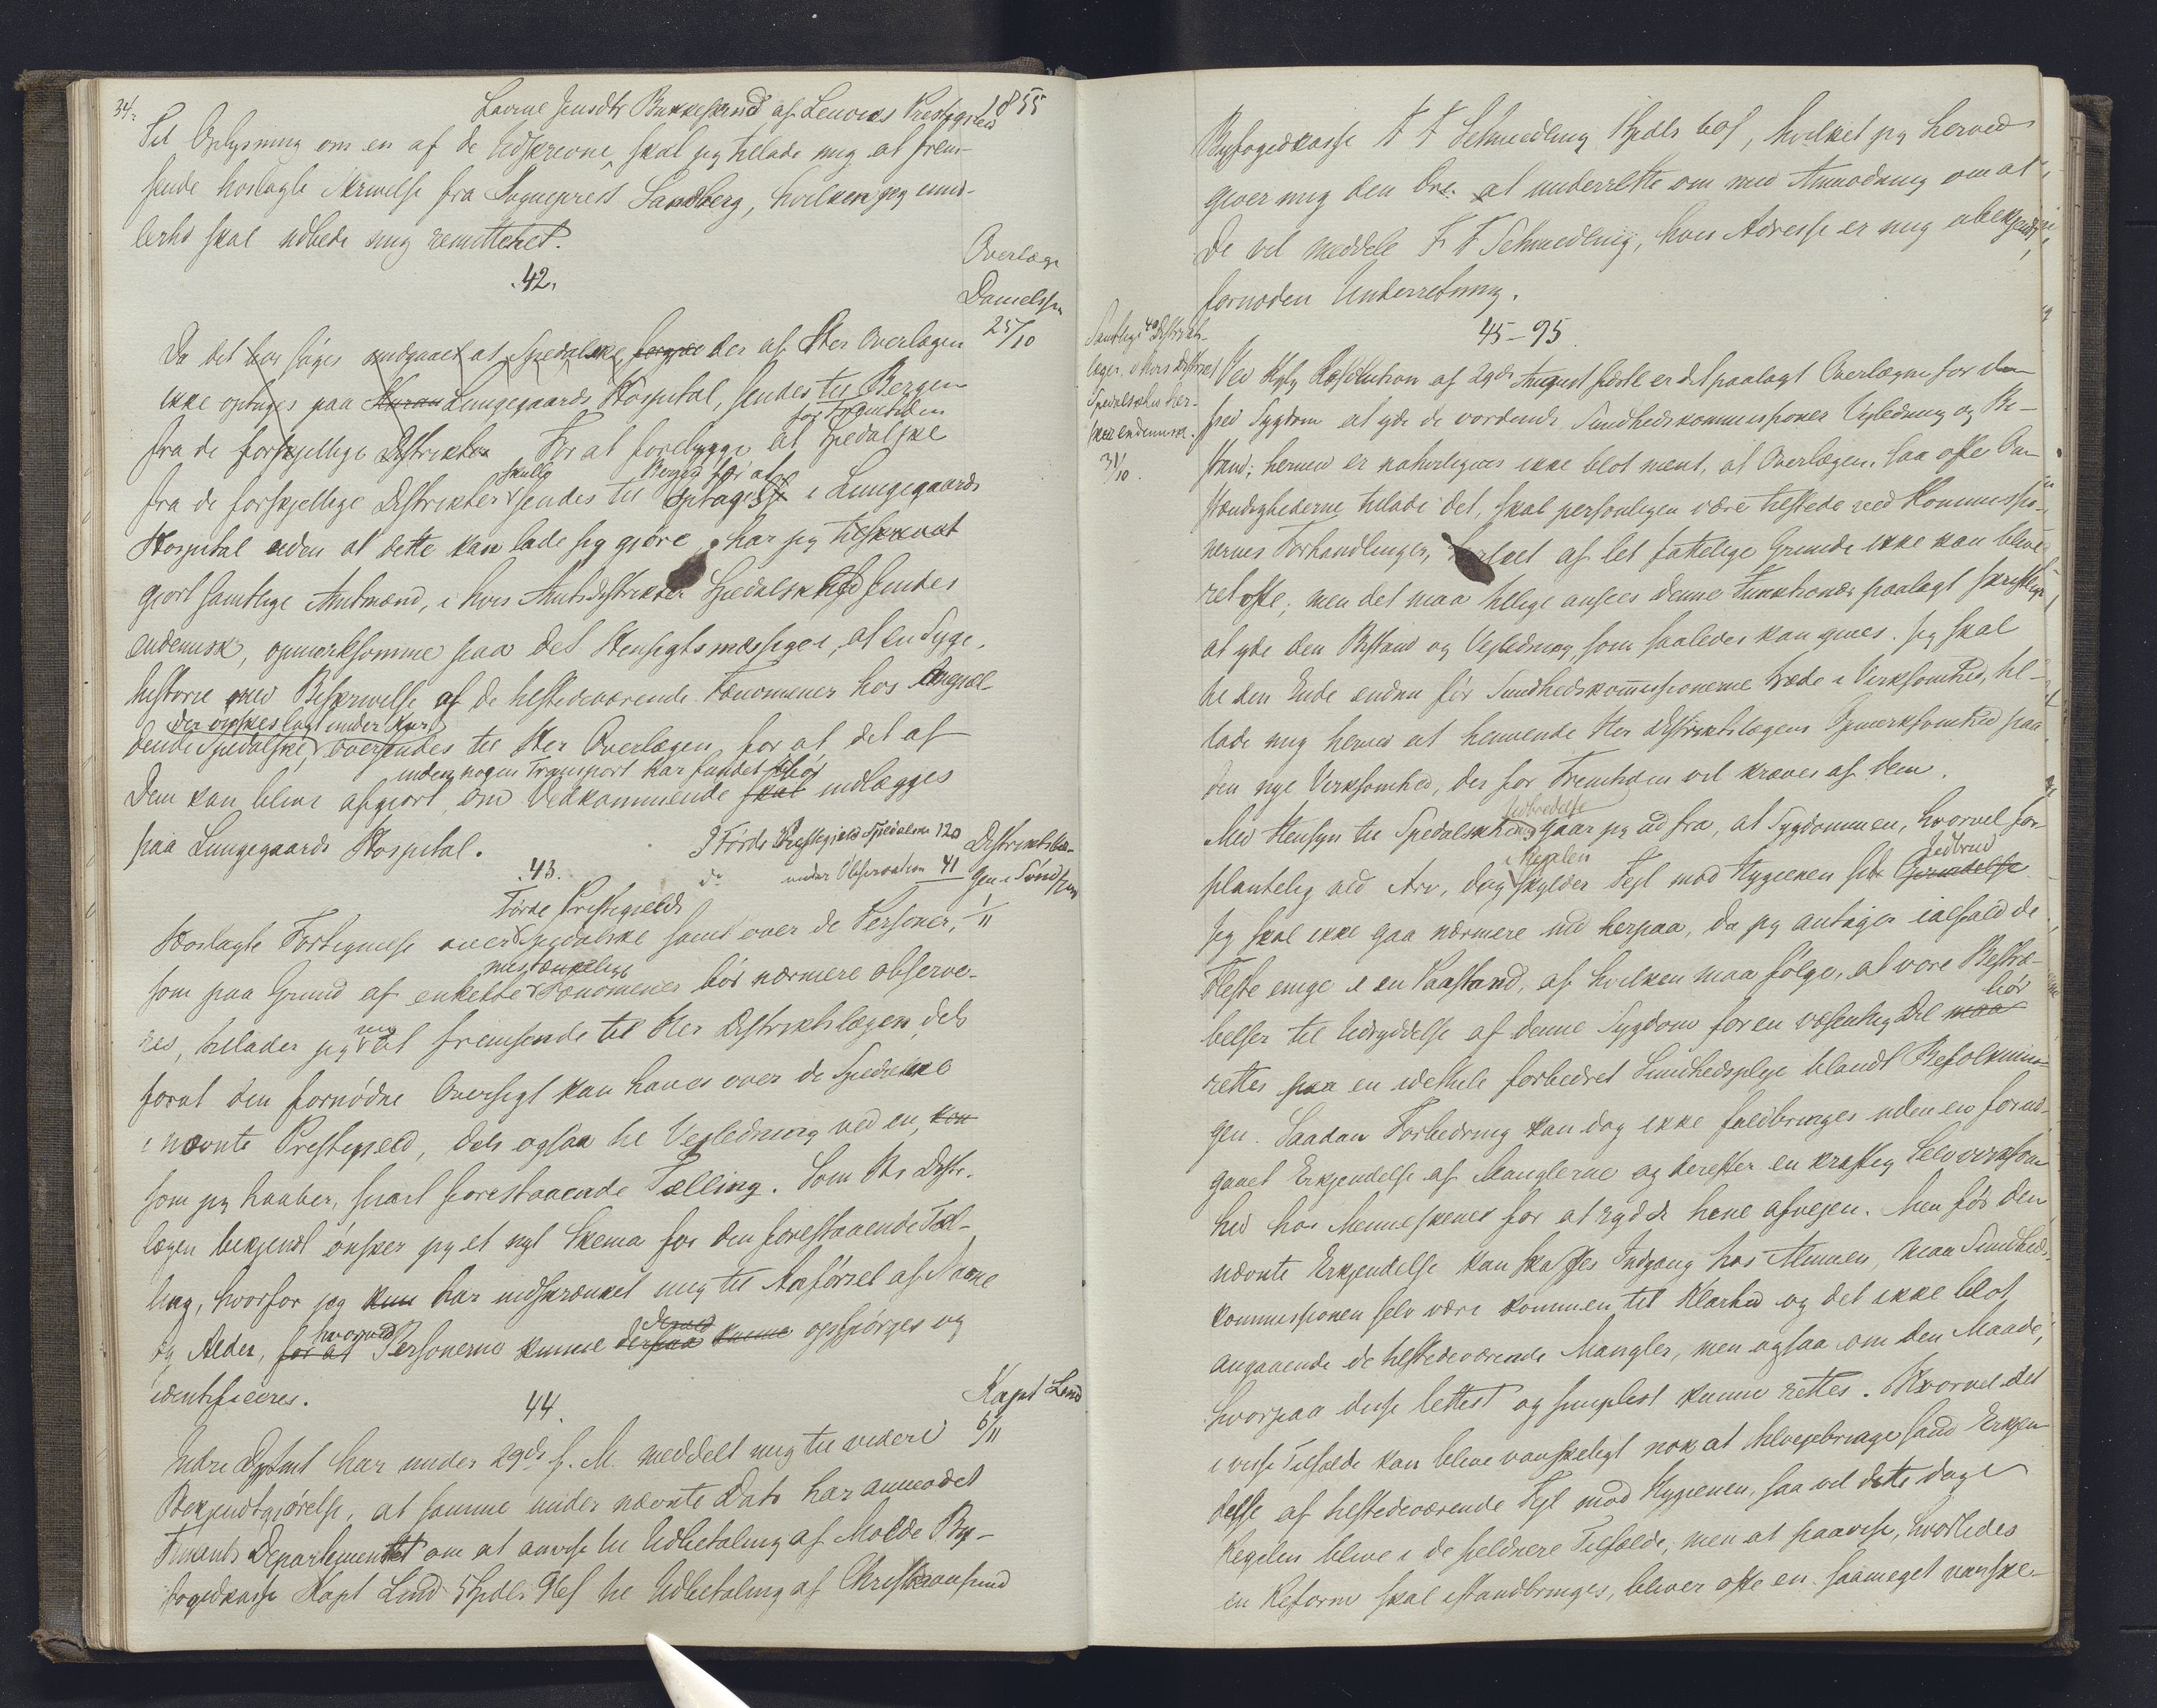 34.
Lovine Jensdtr Bukkesund af Lenviks Prestegjeld 1855
Til Oplysning om en af de Udskrevne, skal jeg tillade mig at frem-
sende hoslagte Skrivelse fra Sogneprest Sandberg, hvilken jeg emid-
lertid skal udbede mig remitteret.
42.
Overlæge
Danielssen
25/10
Da det har siges undgaaet at Spedalske, der af Hr Overlægen
ikke optages paa Lungegaards Hospital, sendes til Bergen
for Fremtiden
fra de forskjellige Distrikter For at forebygge at Spedalske
skulle Bergen for at
fra de forskjellige Distrikter sendes til optages i Lungegaards
Hospital uden at dette kan lade sig gjøre, har jeg tilskrevet
gjort samtlige Amtmænd, i hvis Amtsdistrikter Spedalskhed findes
endemisk, opmærksomme paa det Hensigtsmæssige i, at en Syge-
historie med Beskrivelse af de tilstedeværende Fænomener hos Angjæl-
der ønskes lagt under Kur
dende Spedalske, oversendes til Her Overlægen for at det af
inden nogen Transport har fundet Sted bør
Dem kan blive afgjort, om Vedkommende skal indlægges
paa Lungegaards Hospital.
I Førde Prestegjeld Spedalske 120
do under Observation 41
43.
Distriktslæ-
gen i Søndfjord
1/11
Førde Prestegjelds
Hoslagte Fortegnelse over Spedalske samt over de Personer,
mistænkelige
som paa Grund af enkelte Fænomener bør nærmere observe-
mig
res, tillader jeg at fremsende til Her Distriktslægen, dels
forat den fornødne Oversigt kan haves over de Spedalske
i nævnte Prestegjeld, dels ogsaa til Vejledning ved en, kon
som jeg haaber, snart forestaaende Tælling. Som Hr Distr.
lægen bekjendt ønsker jeg et nyt Skema for den forestaaende Tæl-
ling, hvorfor jeg kun har indskrænket mig til Anførsel af Navne
hvorved derved
og Alder, for at Personerne kunne derpaa kunne opspørges og
identificeres.
44.
Kapt Lind
6/11
Indre Dptmt har under 29de f. M. meddelt mig til videre
Bekjendtgjørelse, at samme under nævnte Dato har anmodet
Finants Departementet om at anvise til Udbetaling af Molde By-
fogedkasse Kapt Lind 5 Spdlr til Udbetaling af Christiansund
Byfogedkasse F F Schmedling Spdlr 60, hvilket jeg herved
giver mig den Ære at underrette om med Anmodning om at
De vil meddele F F Schmedling, hvis Adresse er mig ubekjendt,
fornøden Underretning.
45-95
Samtlige 40 Distrikts-
læger, i hvis Distrikt
Spedalskhed her-
sker endemisk.
31/10.
Ved Kglg Resolution af 29de August sidste er det paalagt Overlægen for den
spedalske Sygdom at yde de vordende Sundhedskommissioner Vejledning og Bi-
stand; hermed er naturligvis ikke blot ment, at Overlægen, saa ofte Om-
stændighederne tillade det, skal personligen være tilstede ved Kommissio-
nernes Forhandlinger, hvilket af let fattelige Grunde ikke kan blive
ret ofte, men det maa tillige ansees denne Funktionær paalagt skriftlig
at yde den Bistand og Vejledning, som saaledes kan gives. Jeg skal
til den Ende endnu før Sundhedskommissionerne træde i Virksomhed, til-
lade mig herved at henvende Her Distriktslægens Opmærksomhed paa
den nye Virksomhed, der for Fremtiden vil kræves af Dem.
Udbredelse
Med Hensyn til Spedalskheds gaar jeg ud fra, at Sygdommen, hvorvel for-
i Regelen Udbrud
plantelig ved Arv, dog skylder Fejl mod Hygienen sit
Jeg skal ikke gaa nærmere ind herpaa, da jeg antager ialfald de
Fleste enige i en Paastand, af hvilken maa følge, at vore Bestræ-
bør
belser til Udryddelse af denne Sygdom for en væsentlig Del maa
rettes paa en idethele forbedret Sundhedspleje blandt Befolknin-
gen. Saadan Forbedring kan dog ikke fuldbringes uden en forud-
gaaet Erkjendelse af Manglerne og derefter en kraftig Selvvirksom-
hed hos Menneskenes for at rydde hine afvejen. Men før den
nævnte Erkjendelse kan skaffes Indgang hos Almuen, maa Sundheds-
kommissionen selv være kommen til Klarhed og det ikke blot
angaaende de tilstedeværende Mangler, men ogsaa om den Maade,
hvorpaa disse lettest og simplest kunne rettes. Hvorvel det
i visse Tilfælde kan blive vanskeligt nok at tilvejebringe sand Erkjen-
delse af tilstedeværende Fejl mod Hygienen, saa vil dette dog i
Regelen blive i de sjeldnere Tilfælde, men at paavise, hvorledes
en Reform skal istandbringes, bliver ofte en saameget vanske-